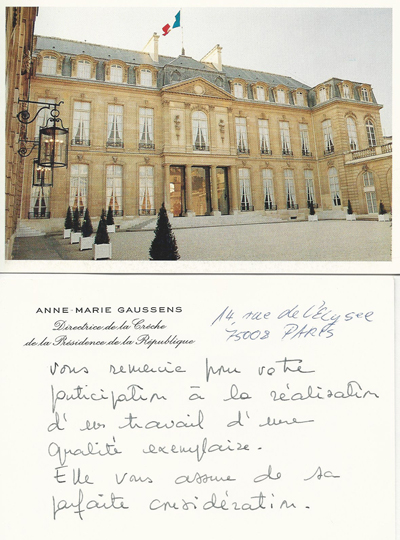 ANNE-MARIE GAUSSENS
Directrice de la Crèche
de la Présidence de la République
14 rue de l'Elysée
75008 PARIS
vous remercie pour votre
participation à la réalisation
d'un travail d'une
qualité exemplaire.
Elle vous assure de sa
parfaite considération.